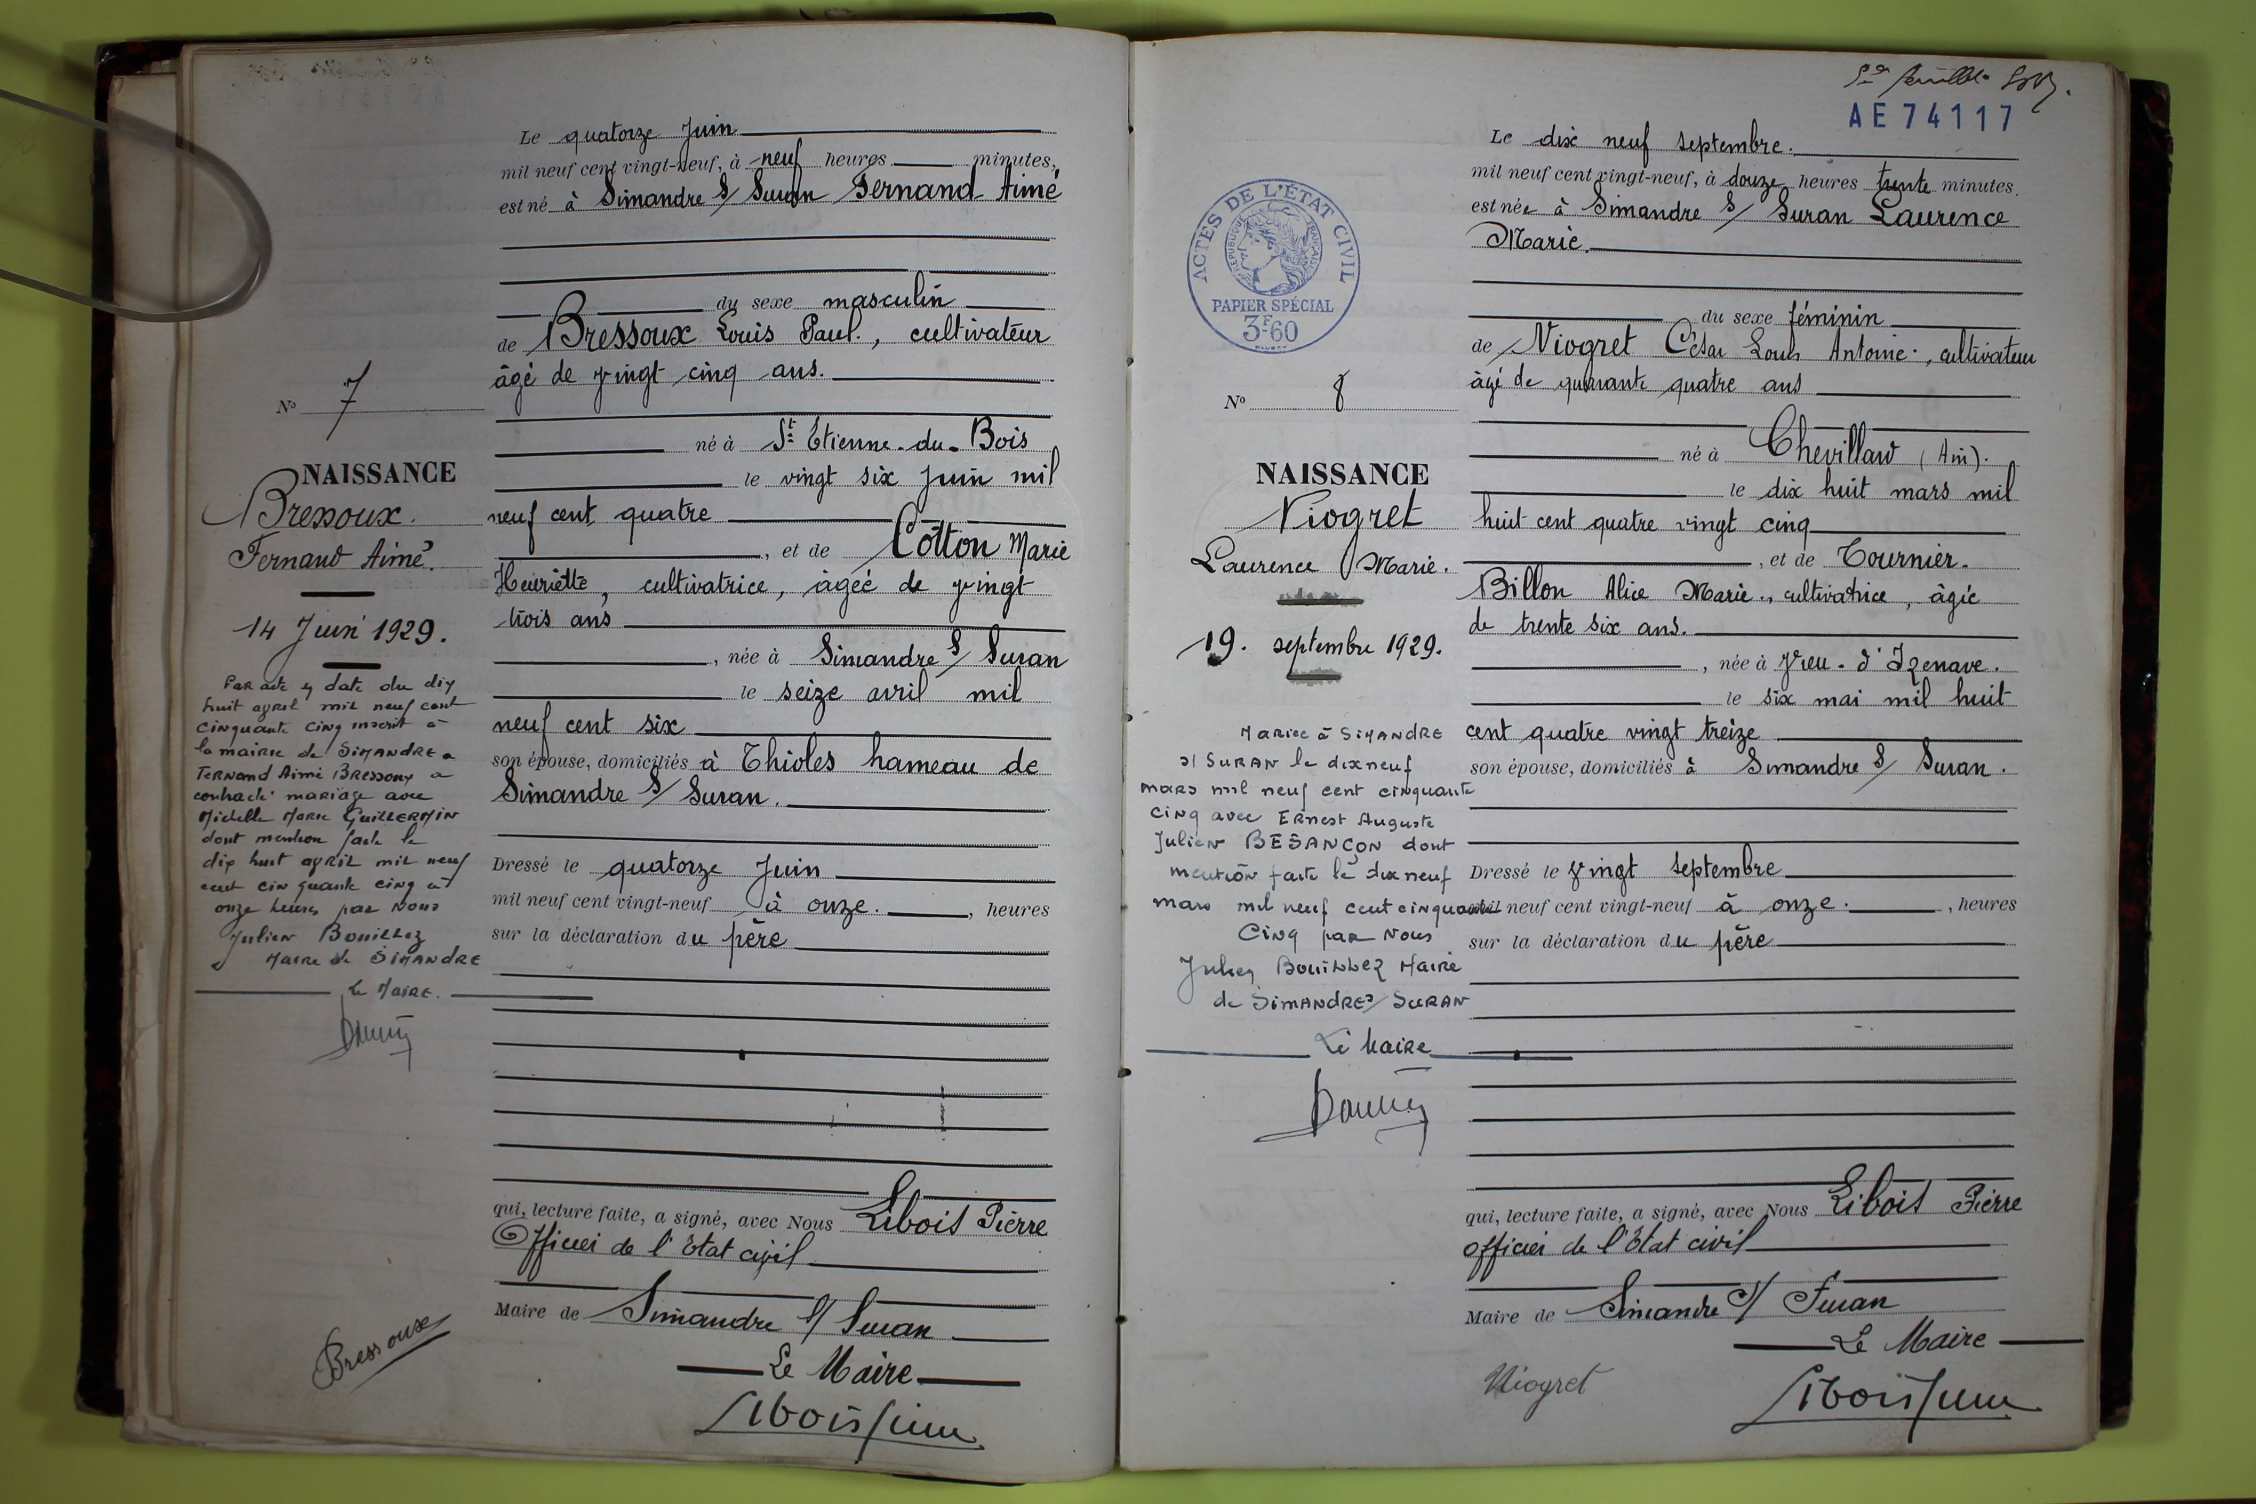 Le quatorze Juin
mil neuf cent vingt-neuf, à neuf heures minutes,
est né à Simandre S/ Suran Fernand Aimé
du sexe masculin
de Bressoux Louis Paul., cultivateur
âgé de vingt cinq ans.
né à St Etienne-du-Bois
le vingt six Juin mil
neuf cent quatre
, et de Cotton Marie
Henriette, cultivatrice, âgée de vingt
trois ans
, née à Simandre S/ Suran
le seize avril mil
neuf cent six
son épouse, domiciliés à Thioles hameau de
Simandre S/ Suran.
Dressé le quatorze Juin
mil neuf cent vingt-neuf à onze. , heures
sur la déclaration du père
qui, lecture faite, a signé, avec Nous Libois Pierre
Officier de l'Etat civil
Maire de Simandre S/ Suran
Le Maire
No 7
NAISSANCE
Bressoux.
Fernand Aimé.
14 Juin 1929.
Par acte en date du dix
huit avril mil neuf cent
cinquante cinq inscrit à
la mairie de SIMANDRE
Fernand Aimé Bressoux a
contracté mariage avec
Michelle Marie GUILLERMIN
dont mention faite le
dix huit avril mil neuf
cent cinquante cinq à
onze heures par Nous
Julien Bouillez
Maire de SIMANDRE
Le Maire.
Bressoux
AE 74117
Le dix neuf septembre.
mil neuf cent vingt-neuf, à douze heures trente minutes.
est née à Simandre S/ Suran Laurence
Marie.
du sexe féminin
de Niogret César Louis Antoine., cultivateur
âgé de quarante quatre ans
né à Chevillard (Ain).
le dix huit mars mil
huit cent quatre vingt cinq
, et de Tournier.
Billon Alice Marie., cultivatrice, âgée
de trente six ans.
, née à Vieu-d'Izenave.
le six mai mil huit
cent quatre vingt treize
son épouse, domiciliés à Simandre S/ Suran.
Dressé le vingt septembre
mil neuf cent vingt-neuf à onze. , heures
sur la déclaration du père
qui, lecture faite, a signé, avec Nous Libois Pierre
officier de l'Etat civil
Maire de Simandre S/ Suran
Le Maire
Niogret
ACTES DE L'ÉTAT CIVIL
RÉPUBLIQUE FRANÇAISE
PAPIER SPÉCIAL
3F60
No 8
NAISSANCE
Niogret
Laurence Marie.
19. septembre 1929.
Mariée à SIMANDRE
s/ SURAN le dix neuf
mars mil neuf cent cinquante
cinq avec Ernest Auguste
Julien BESANÇON dont
mention faite le dix neuf
mars mil neuf cent cinquante
Cinq par Nous
Julien Bouillez Maire
de SIMANDRE s/ SURAN
Le Maire